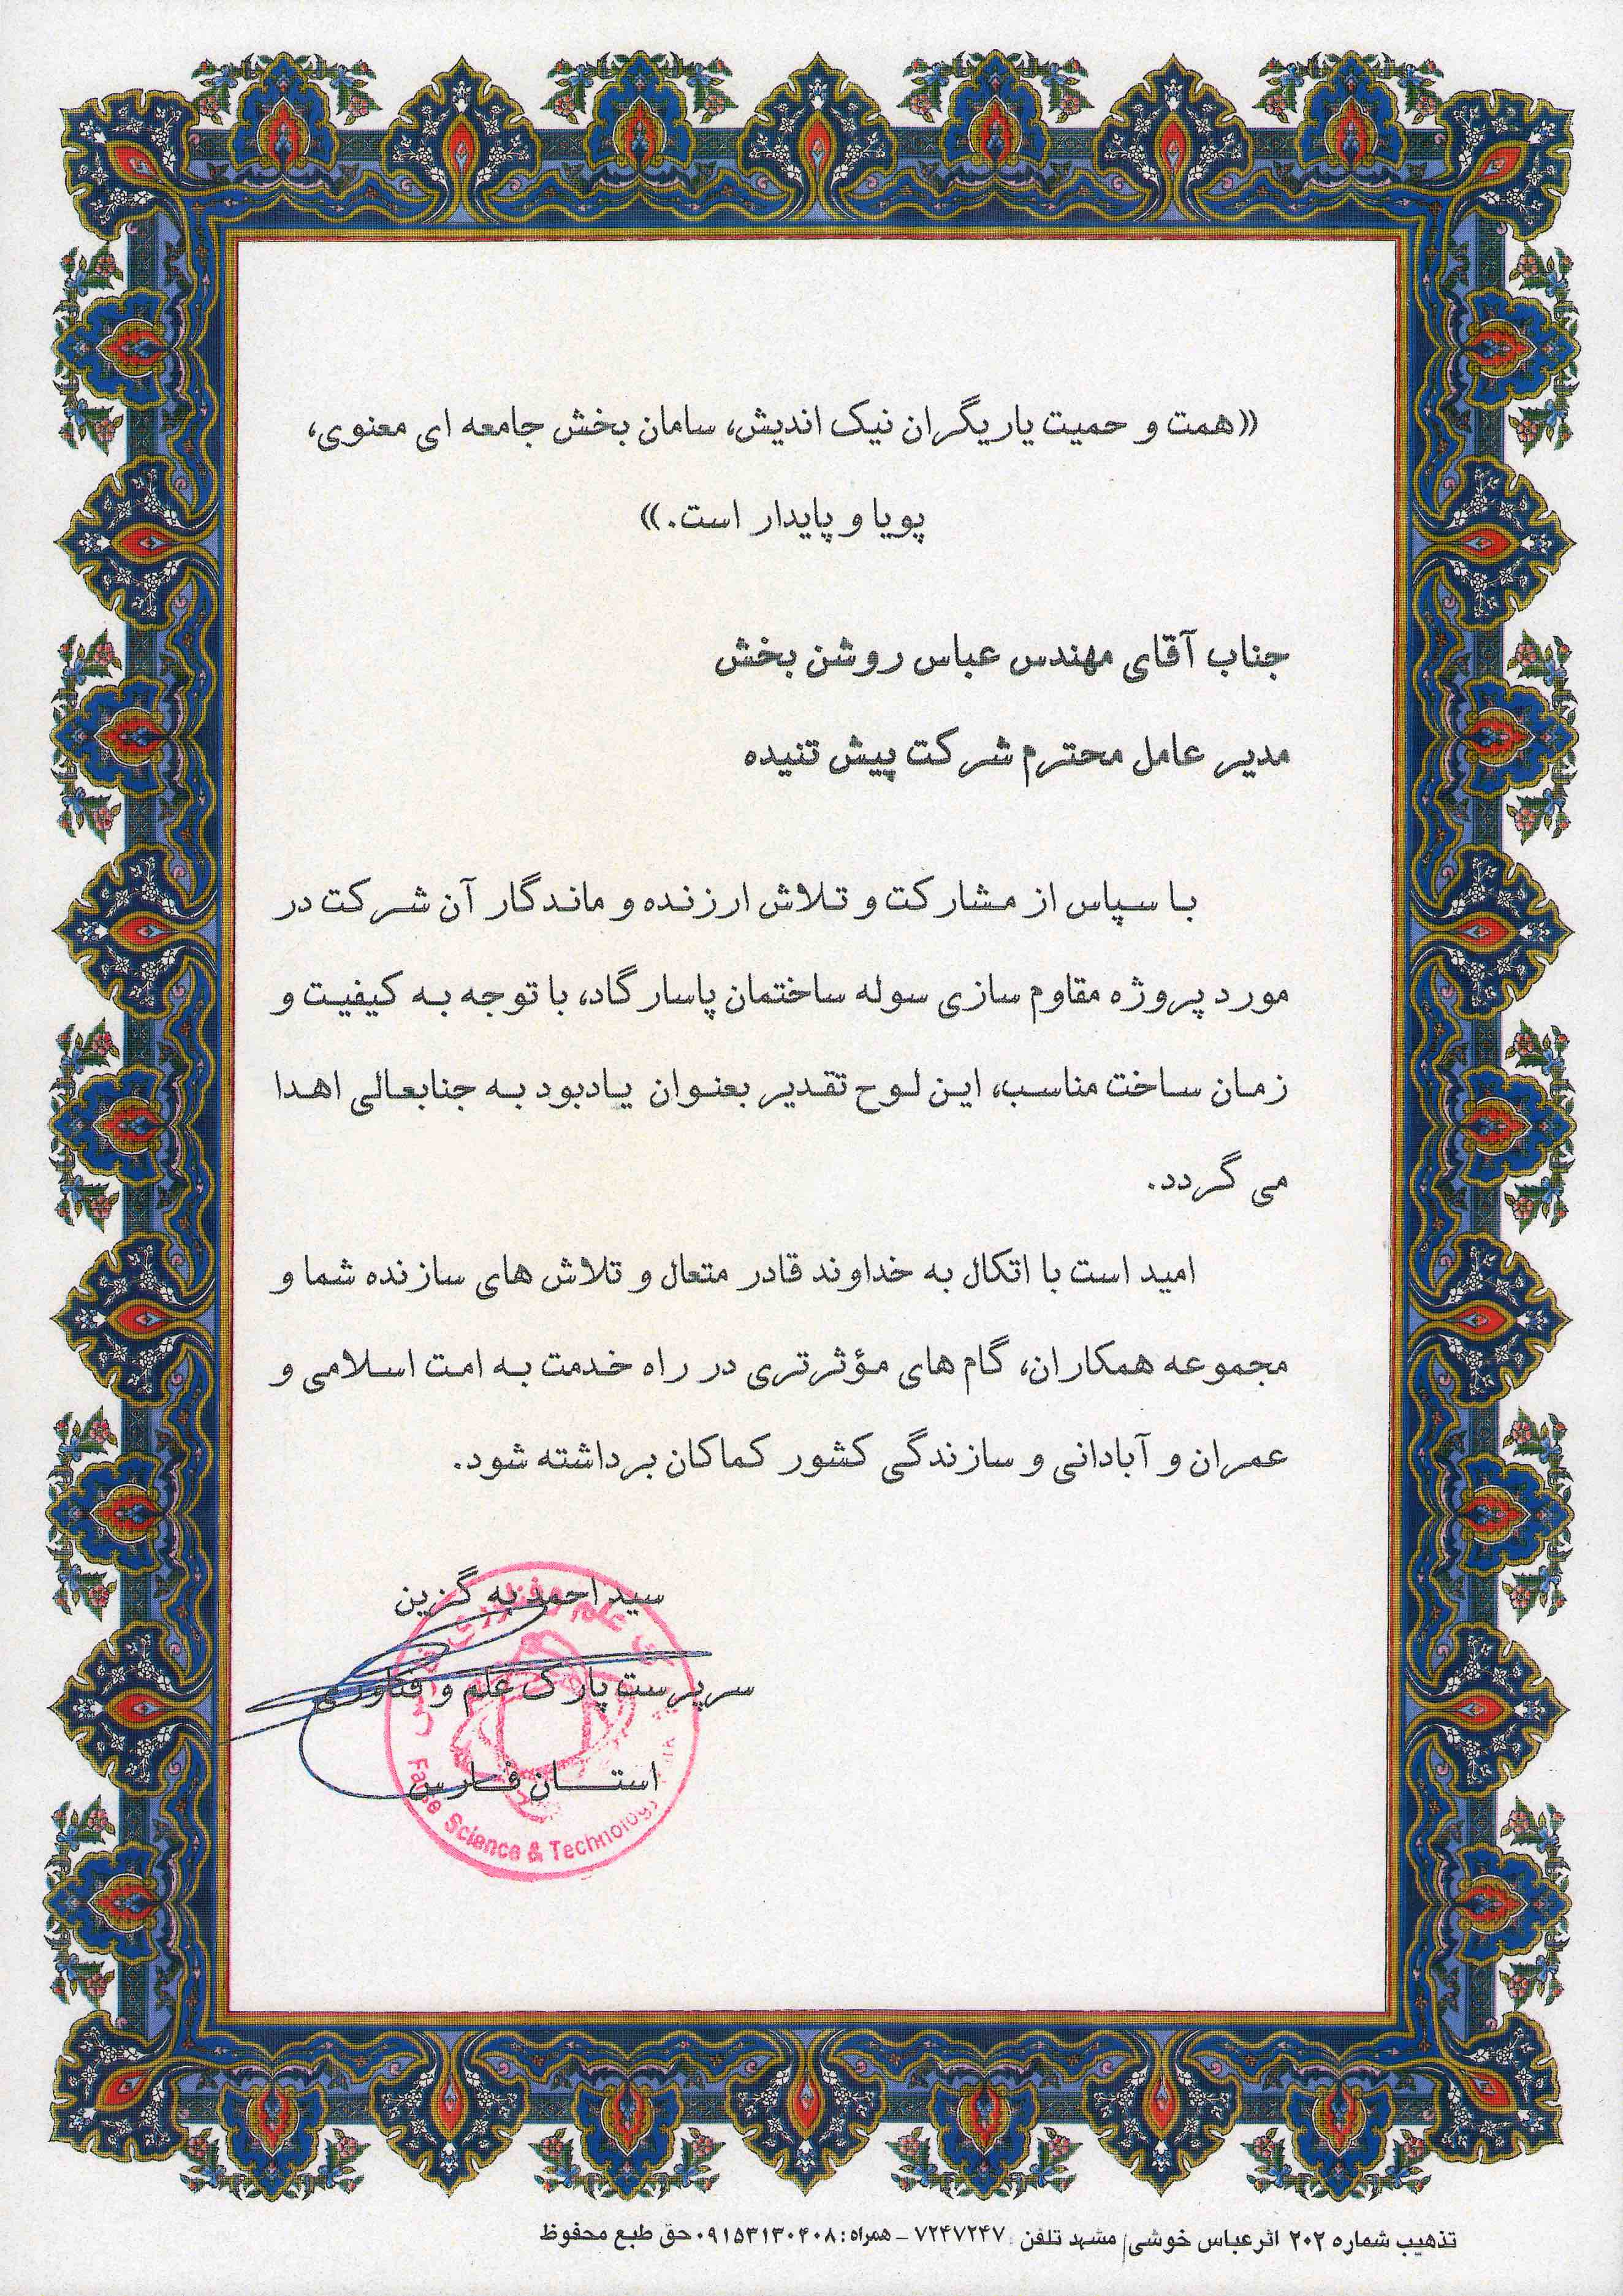 «همت و حمیت یاریگران نیک اندیش، سامان بخش جامعه ای معنوی،
پویا و پایدار است.»
جناب آقای مهندس عباس روشن بخش
مدیر عامل محترم شرکت پیش تنیده
با سپاس از مشارکت و تلاش ارزنده و ماندگار آن شرکت در
مورد پروژه مقاوم سازی سوله ساختمان پاسارگاد، با توجه به کیفیت و
زمان ساخت مناسب، این لوح تقدیر بعنوان یادبود به جنابعالی اهدا
می گردد.
امید است با اتکال به خداوند قادر متعال و تلاش های سازنده شما و
مجموعه همکاران، گام های مؤثرتری در راه خدمت به امت اسلامی و
عمران و آبادانی و سازندگی کشور کماکان برداشته شود.
سید احمد به گزین
سرپرست پارک علم و فناوری
استان فارس
Science & Technology
تذهیب شماره ۲۰۲ اثر عباس خوشی/ مشهد تلفن: ۷۲۴۷۲۴۷ - همراه: ۰۹۱۵۳۱۳۰۴۰۸ حق طبع محفوظ